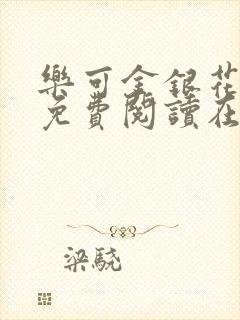 樂可金銀花
免費閱讀在
梁驍